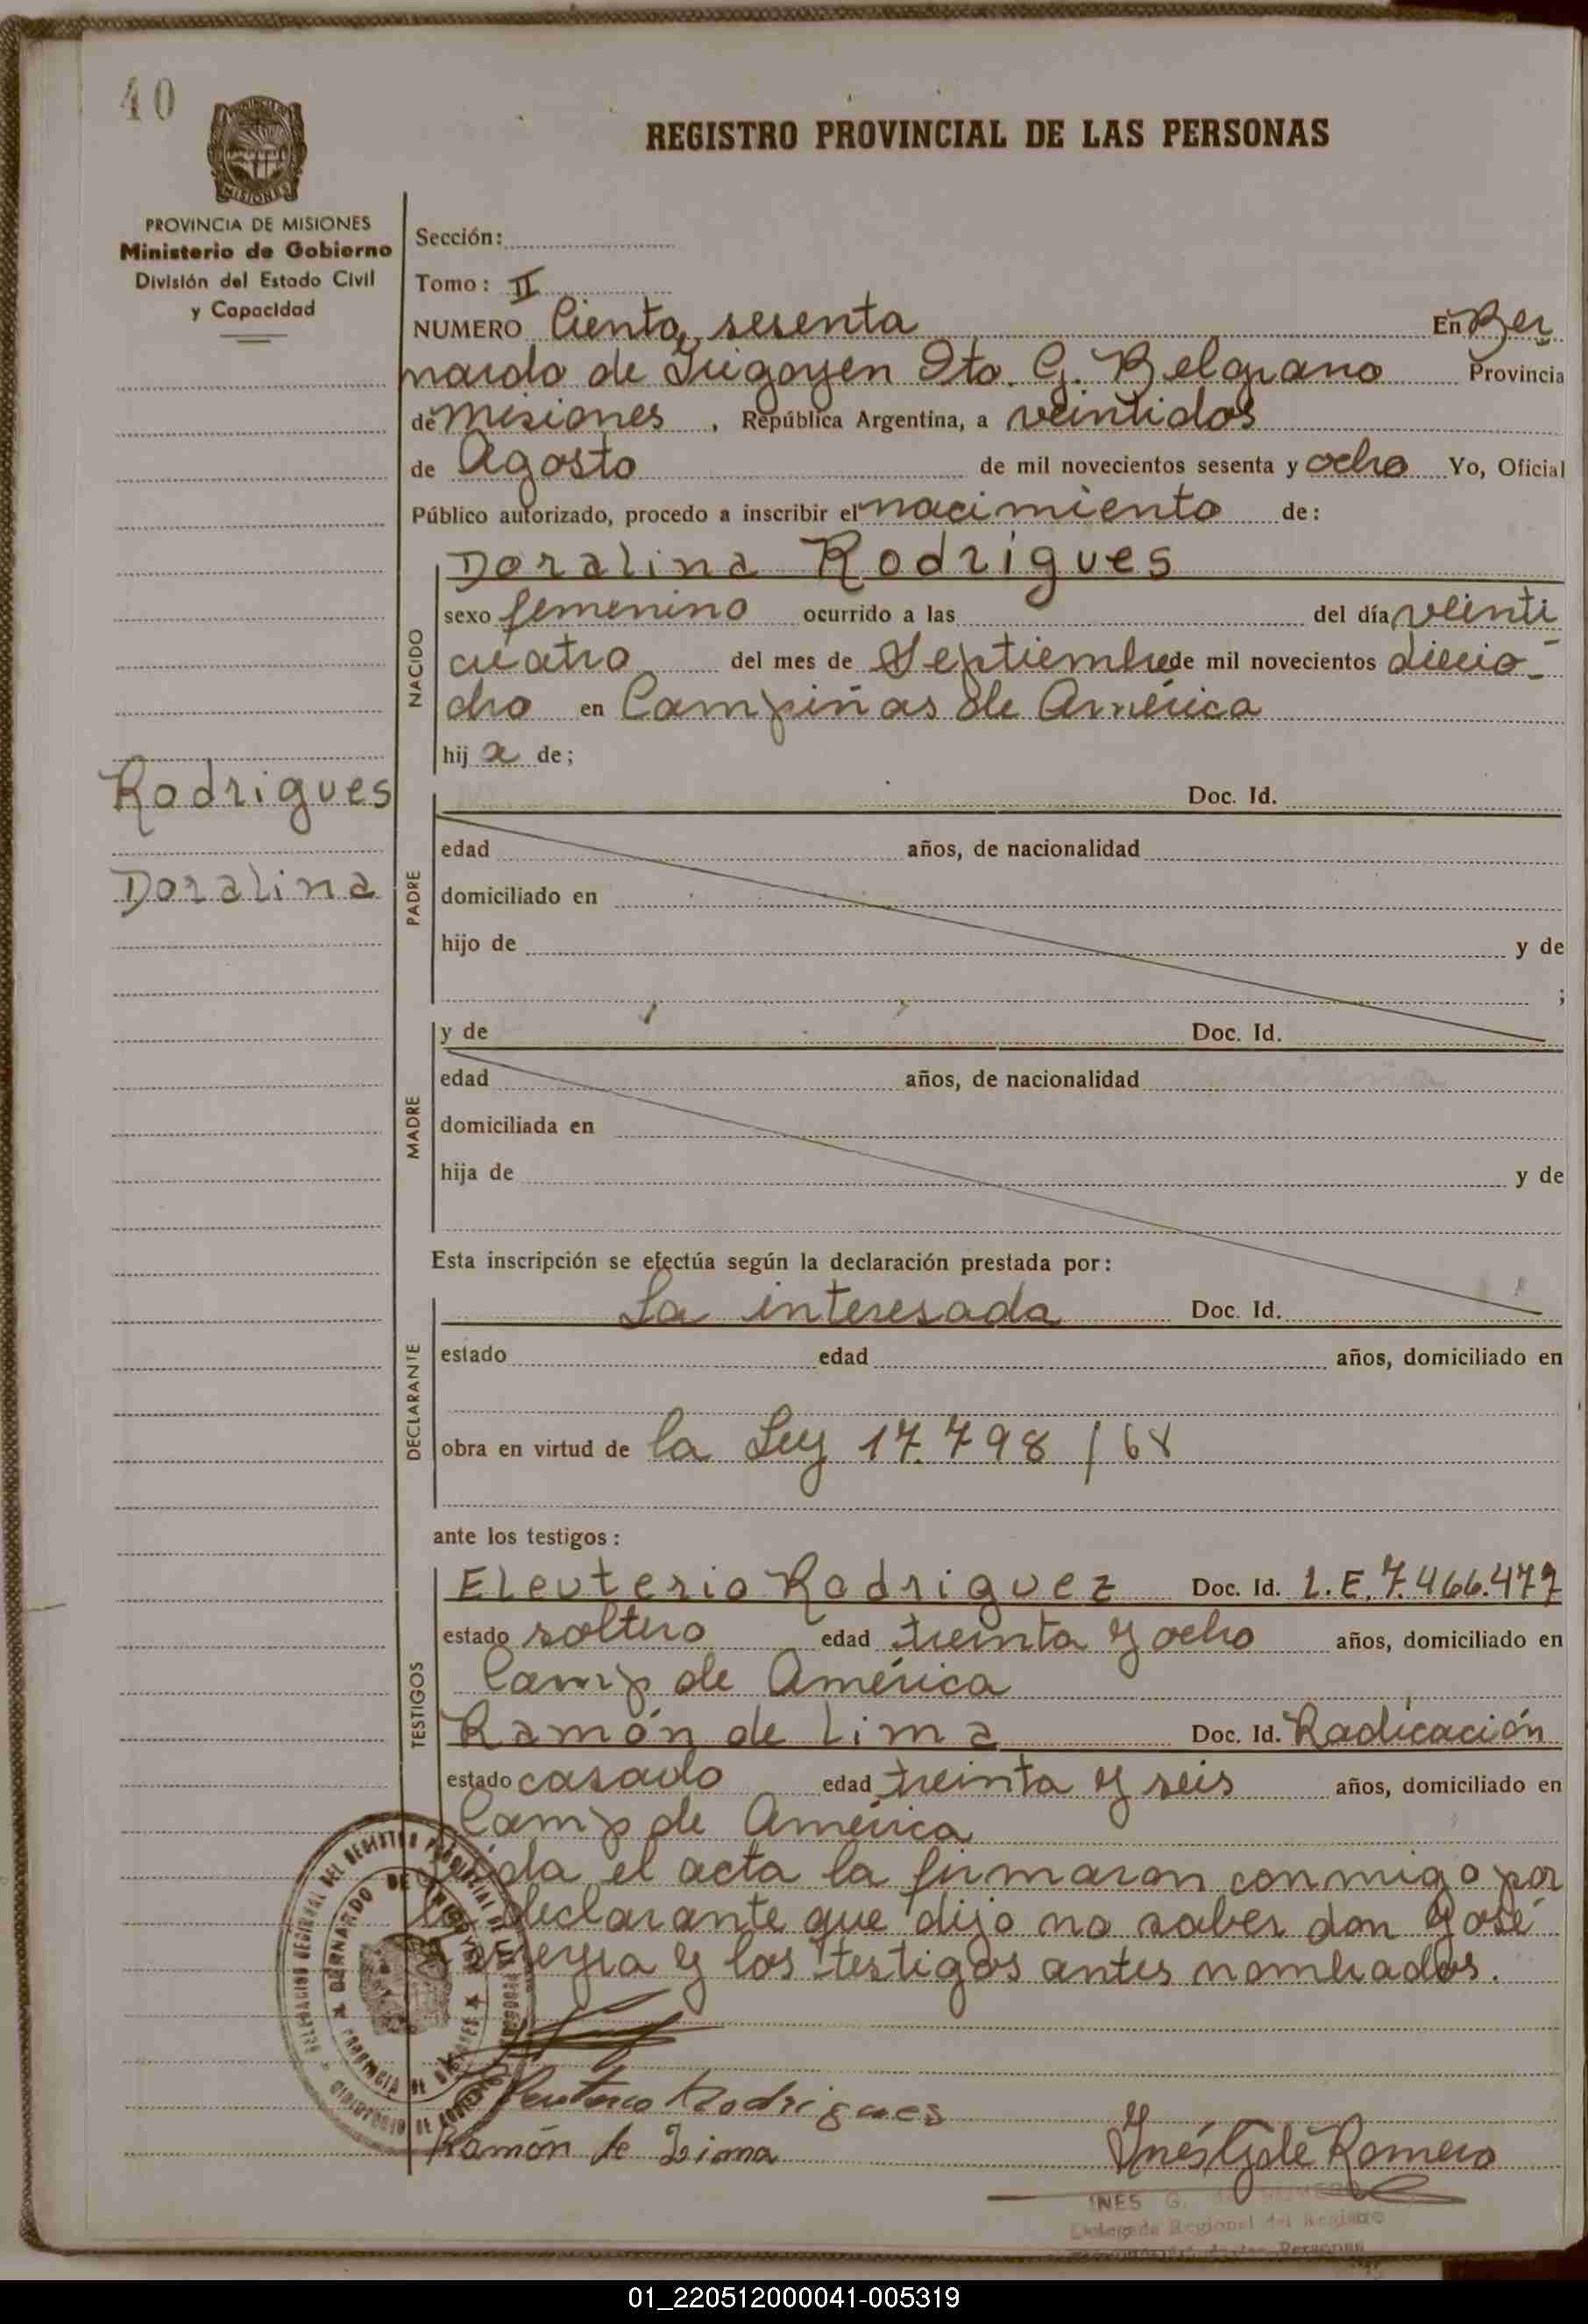 40
REGISTRO PROVINCIAL DE LAS PERSONAS
MISIONES
PROVINCIA DE MISIONES
Ministerio de Gobierno
División del Estado Civil
y Capacidad
Sección:
Tomo: II
NUMERO Ciento sesenta En Ber
nardo de Irigoyen Dto. G. Belgrano Provincia
de Misiones, República Argentina, a veintidos
de Agosto de mil novecientos sesenta y ocho Yo, Oficial
Público autorizado, procedo a inscribir el nacimiento de:
Doralina Rodrigues
NACIDO
sexo femenino ocurrido a las del día veinti
cuatro del mes de Septiembre de mil novecientos diecio-
cho en Campiñas de América
hija de;
Rodrigues
Doralina
PADRE
Doc. Id.
edad años, de nacionalidad
domiciliado en
hijo de y de
;
MADRE
y de Doc. Id.
edad años, de nacionalidad
domiciliada en
hija de y de
Esta inscripción se efectúa según la declaración prestada por:
DECLARANTE
La interesada Doc. Id.
estado edad años, domiciliado en
obra en virtud de la Ley 17.798/68
ante los testigos:
TESTIGOS
Eleuterio Rodriguez Doc. Id. L.E. 7.466.477
estado soltero edad treinta y ocho años, domiciliado en
Camp de América
Ramón de Lima Doc. Id. Radicación
estado casado edad treinta y seis años, domiciliado en
Camp de América
el acta la firmaron conmigo por
la declarante que dijo no saber don José
y los testigos antes nombrados.
Rodrigues
Ramón de Lima
Inés G de Romero
INES G.
Delegada Regional del Registro
Personas
01_220512000041-005319